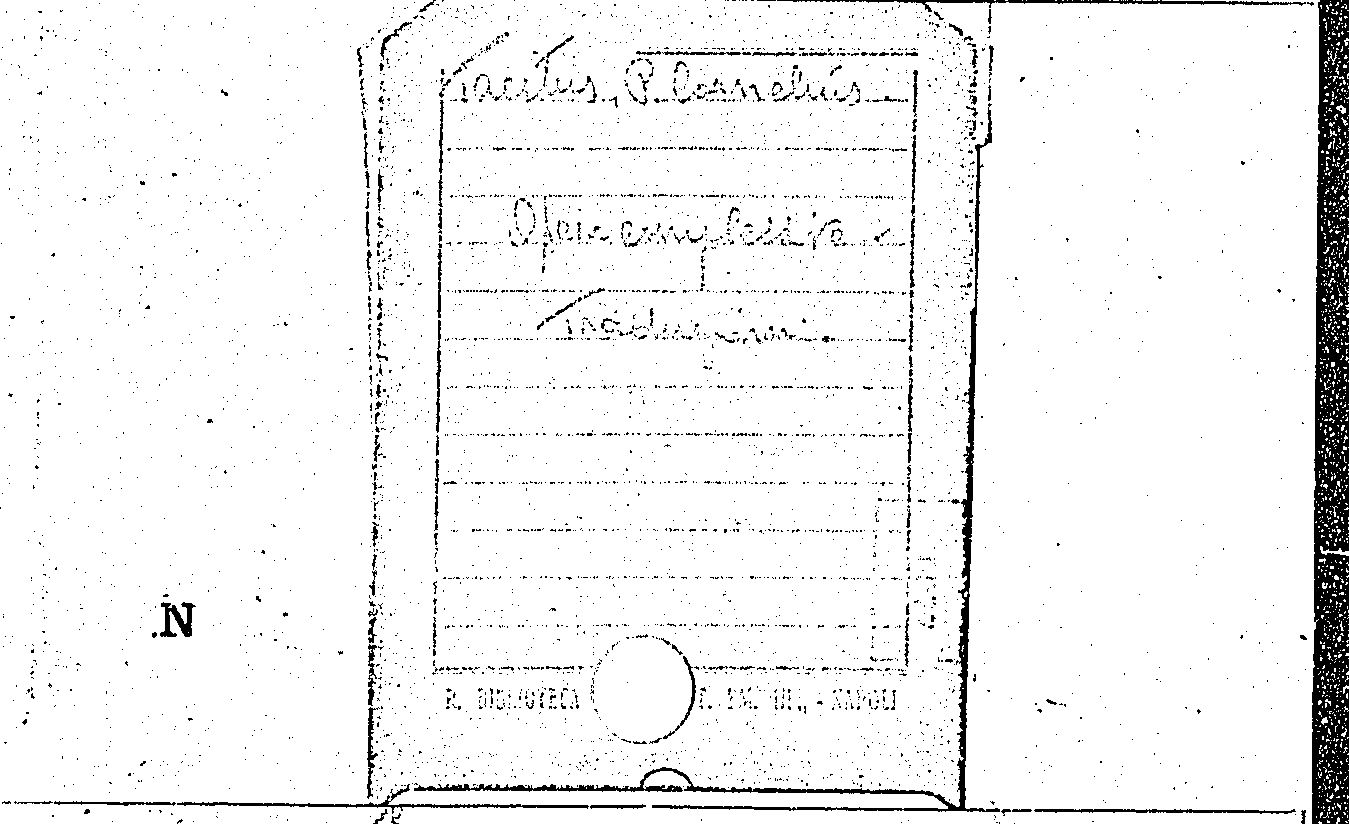 Tacitus, P. Cornelius.
Opere complete
Traduzioni.
.N
R. BIBLIOTECA V. EM. III. - NAPOLI